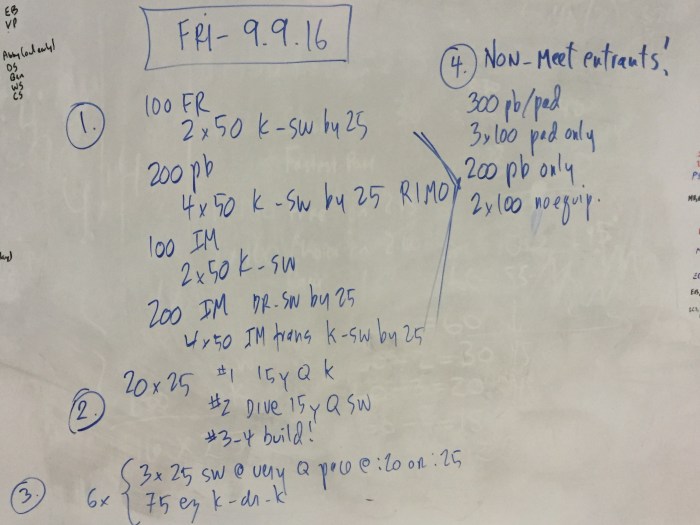 EB
VP
OS
WS
CS
FRI - 9.9.16
1.
100 FR
2x50 K-SW by 25
200 pb
4x50 K-SW by 25 RIMO
100 IM
2x50 K-SW
200 IM DR-SW by 25
4x50 IM trans K-SW by 25
2.
20x25 #1 15y Q K
#2 Dive 15y Q SW
#3-4 build!
3.
6x { 3x25 SW @ very Q pace @ :20 or :25
75 ez K-dr-K
4. NON-Meet entrants!
300 pb/pad
3x100 pad only
200 pb only
2x100 no equip.